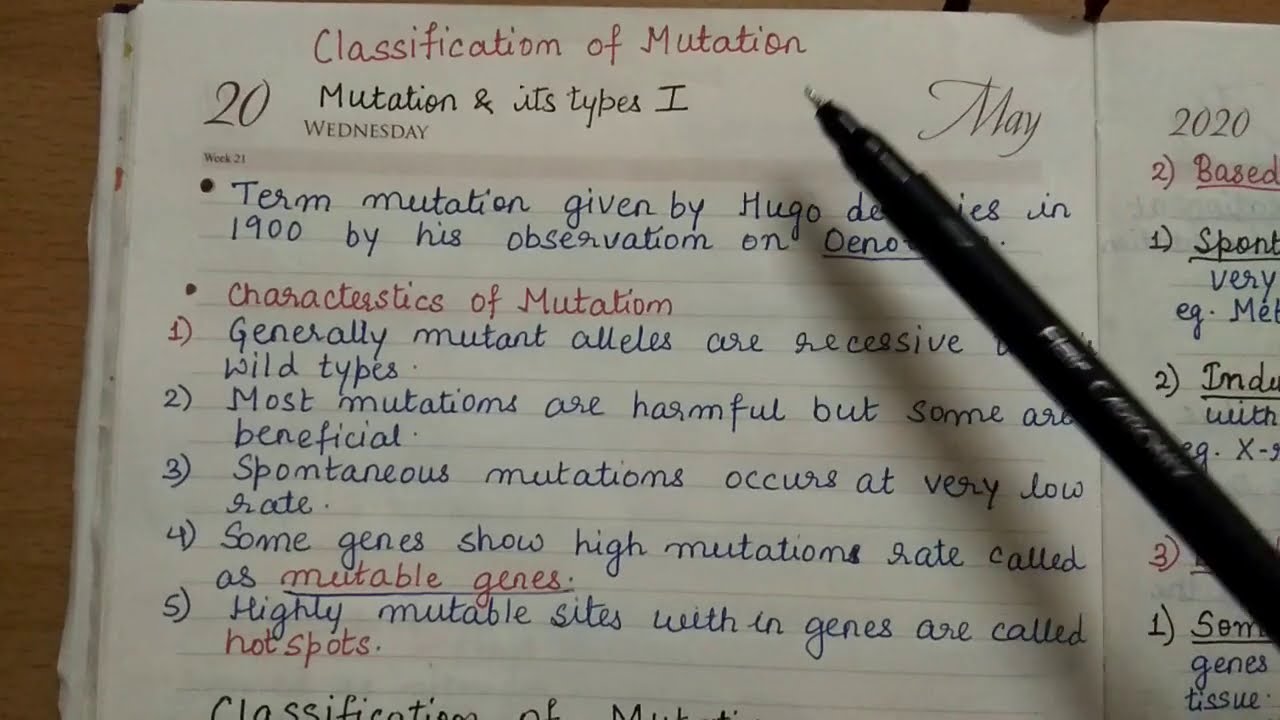 Classification of Mutation
20 Mutation & its types I May
WEDNESDAY
Week 21
• Term mutation given by Hugo de in
1900 by his observation on
• Characterstics of Mutation
1) Generally mutant alleles are recessive
wild types.
2) Most mutations are harmful but some are
beneficial.
3) Spontaneous mutations occurs at very low
rate.
4) Some genes show high mutations rate called
as mutable genes.
5) Highly mutable sites with in genes are called
hotspots.
Classification of
2020
2) Based
1)
very
eg.
2)
with
eg.
3)
1)
genes
tissue.